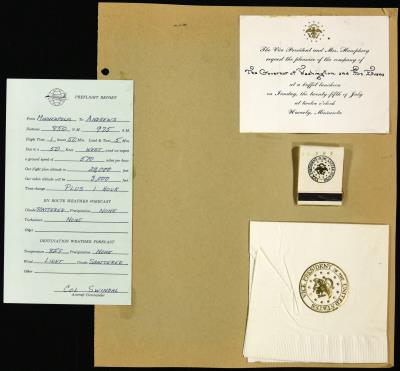 PREFLIGHT REPORT
From MINNEAPOLIS To ANDREWS
Distance 850 N.M. 975 S.M.
Flight Time 1 hours 50 Min. Land & Taxi 5 Min.
Due to a 50 Knot WEST wind we expect
a ground speed of 570 miles per hour
Our flight plan altitude is 29,000 feet
Our cabin altitude will be 3,000 feet
Time change PLUS 1 HOUR
EN ROUTE WEATHER FORECAST
Clouds SCATTERED Precipitation NONE
Turbulence NONE
Other
DESTINATION WEATHER FORECAST
Temperature 85F Precipitation NONE
Wind LIGHT Clouds SCATTERED
Other
COL SWINDAL
Aircraft Commander
The Vice President and Mrs. Humphrey
request the pleasure of the company of
The Governor of Washington and Mrs Evans
at a buffet luncheon
on Sunday, the twenty fifth of July
at twelve o'clock
Waverly, Minnesota
VICE PRESIDENT OF THE UNITED STATES